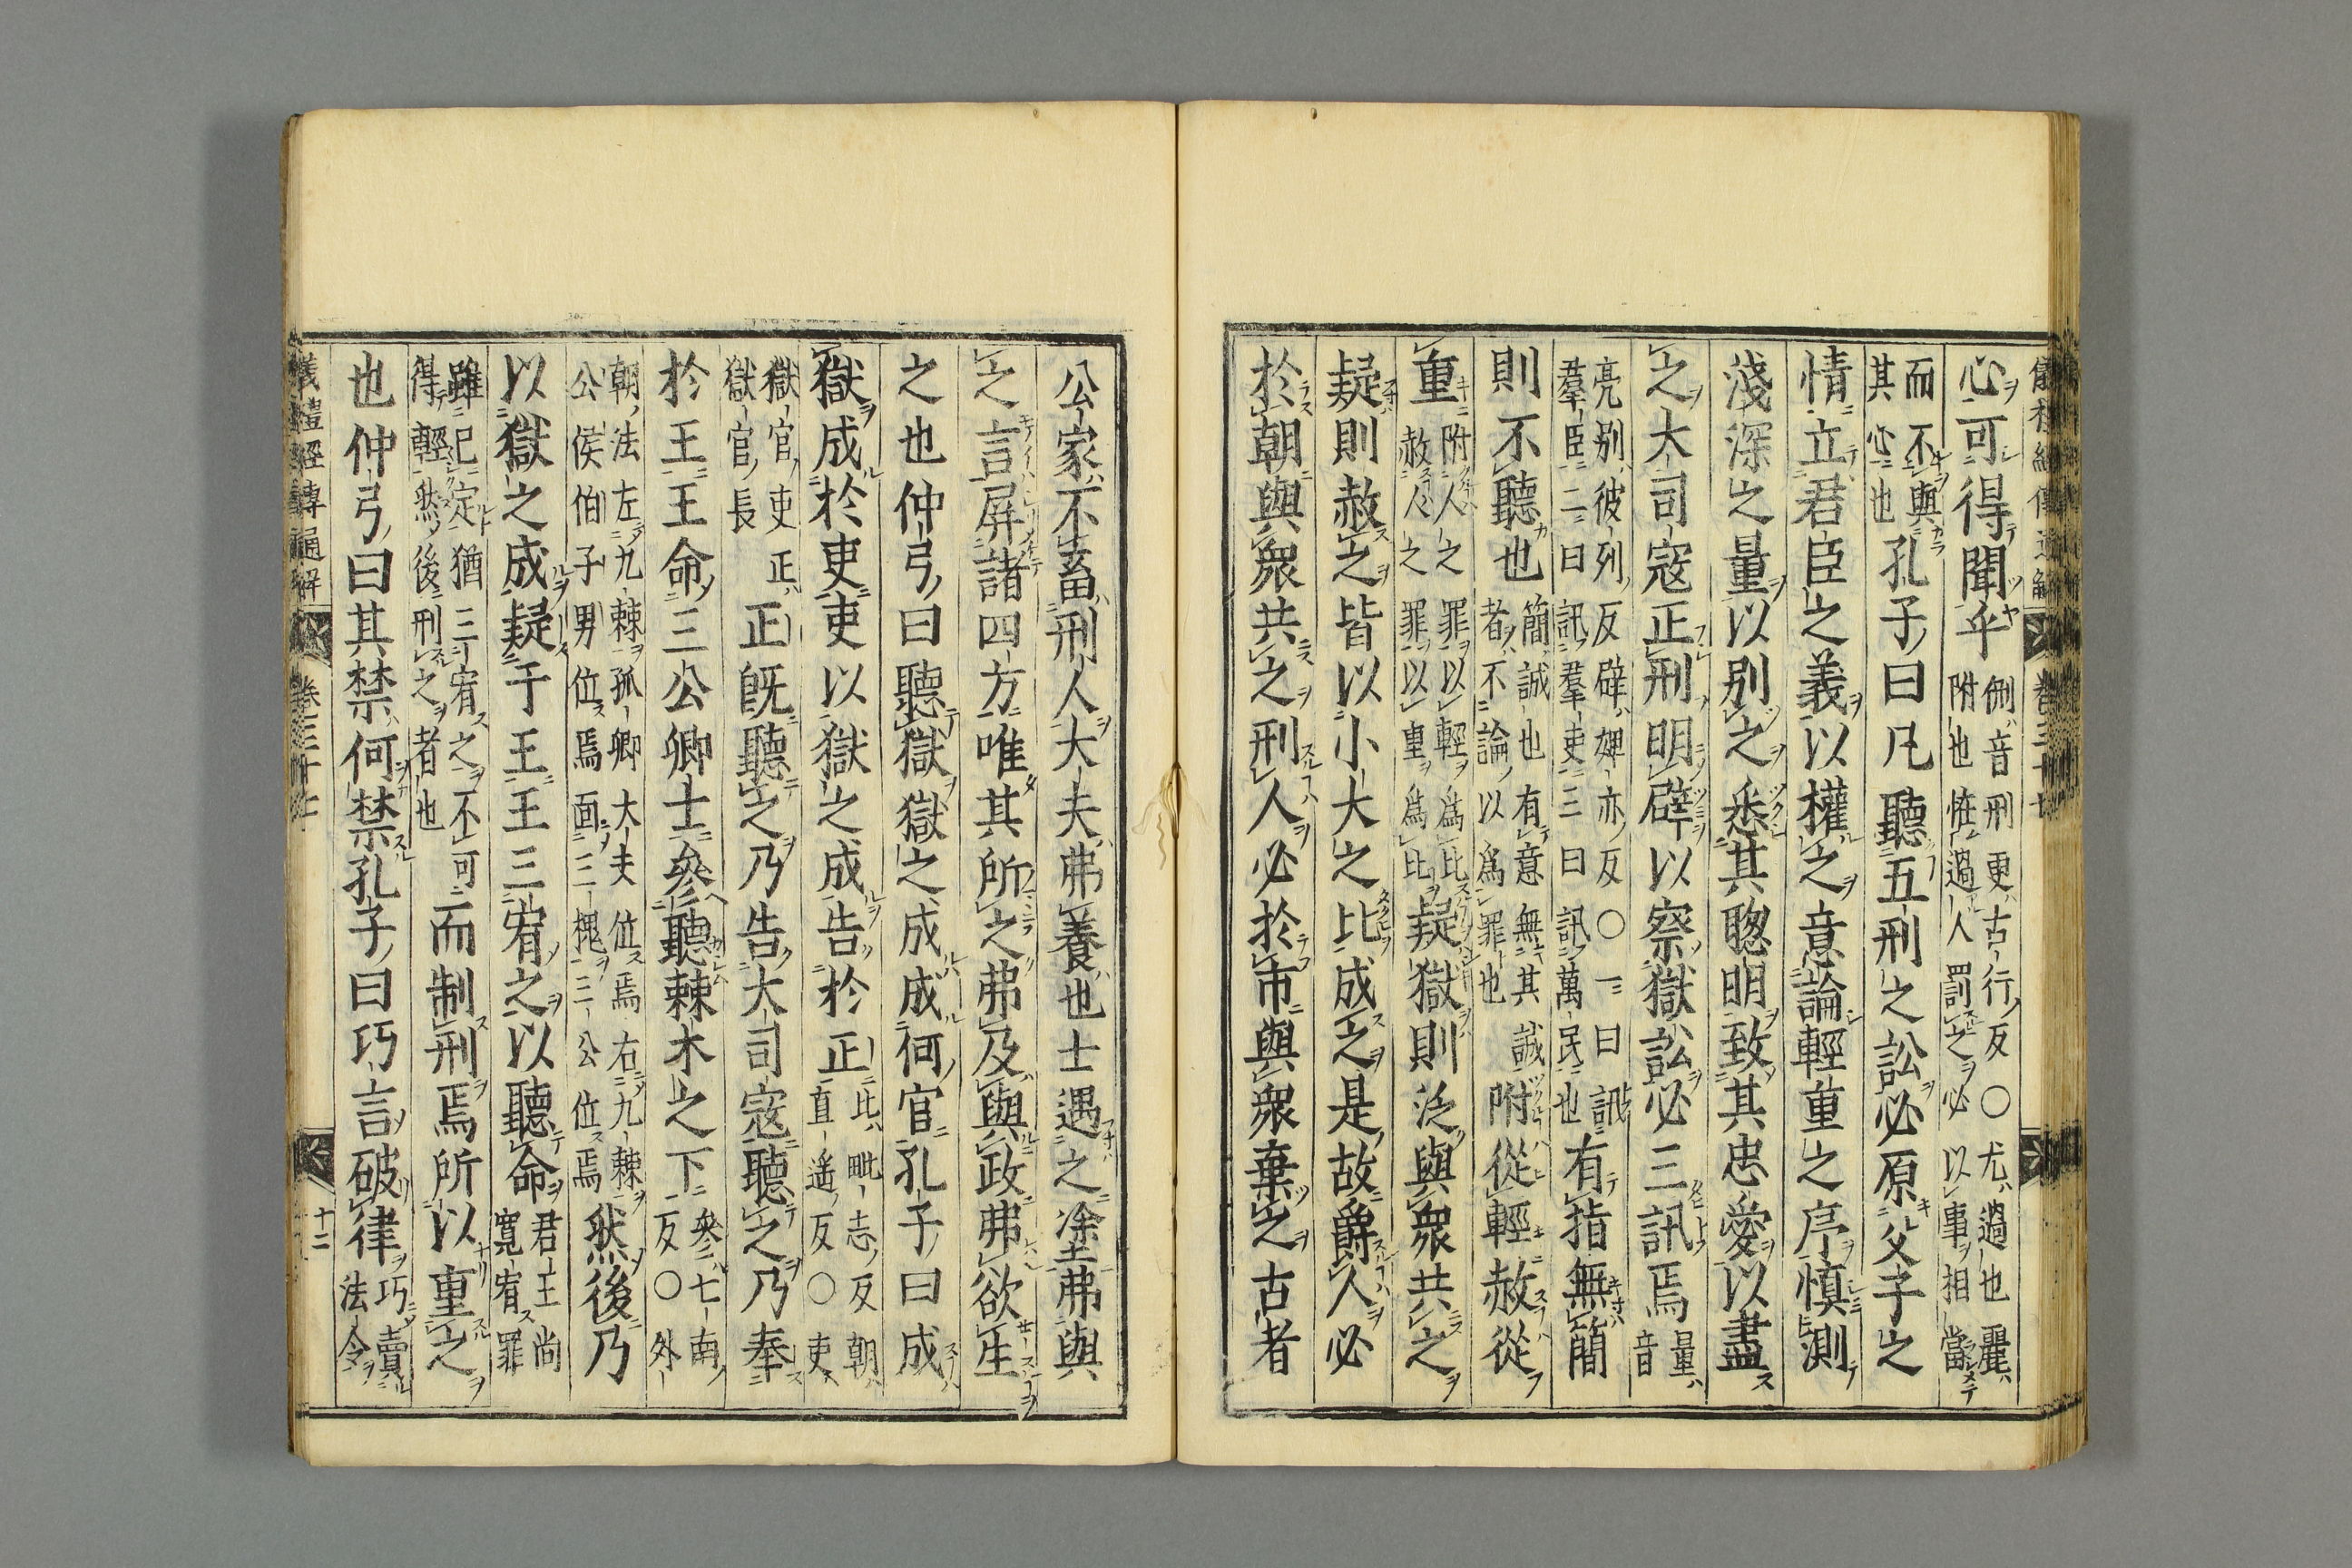 儀禮經傳通解 卷三十七
心可得聞乎侀音刑更古行反○尤過也麗附也恠過人罰之必以事相當
而不與其心也孔子曰凡聽五刑之訟必原父子之
情立君臣之義以權之意論輕重之序慎測
淺深之量以別之悉其聰明致其忠愛以盡
之大司寇正刑明辟以察獄訟必三訊焉量音
亮別彼列反辟婢亦反○一曰訊羣臣二曰訊羣吏三曰訊萬民也有指無簡
則不聽也簡誠也有意無其誠者不論以爲罪也附從輕赦從
重附人之罪以輕爲比赦人之罪以重爲比疑獄則泛與衆共之
疑則赦之皆以小大之比成之是故爵人必
於朝與衆共之刑人必於市與衆棄之古者
公家不畜刑人大夫弗養也士遇之塗弗與
之言屏諸四方唯其所之弗及與政弗欲生
之也仲弓曰聽獄獄之成成何官孔子曰成
獄成於吏吏以獄之成告於正比毗志反朝直遙反○吏
獄官吏正獄官長正既聽之乃告大司寇聽之乃奉
於王王命三公卿士參聽棘木之下參七南反○外
朝法左九棘孤卿大夫位焉右九棘公侯伯子男位焉面三槐三公位焉然後乃
以獄之成疑于王王三宥之以聽命君王尚寬宥罪
雖已定猶三宥之不可得輕然後刑之者也而制刑焉所以重之
也仲弓曰其禁何禁孔子曰巧言破律巧賣法令
儀禮經傳通解 卷三十七 十二